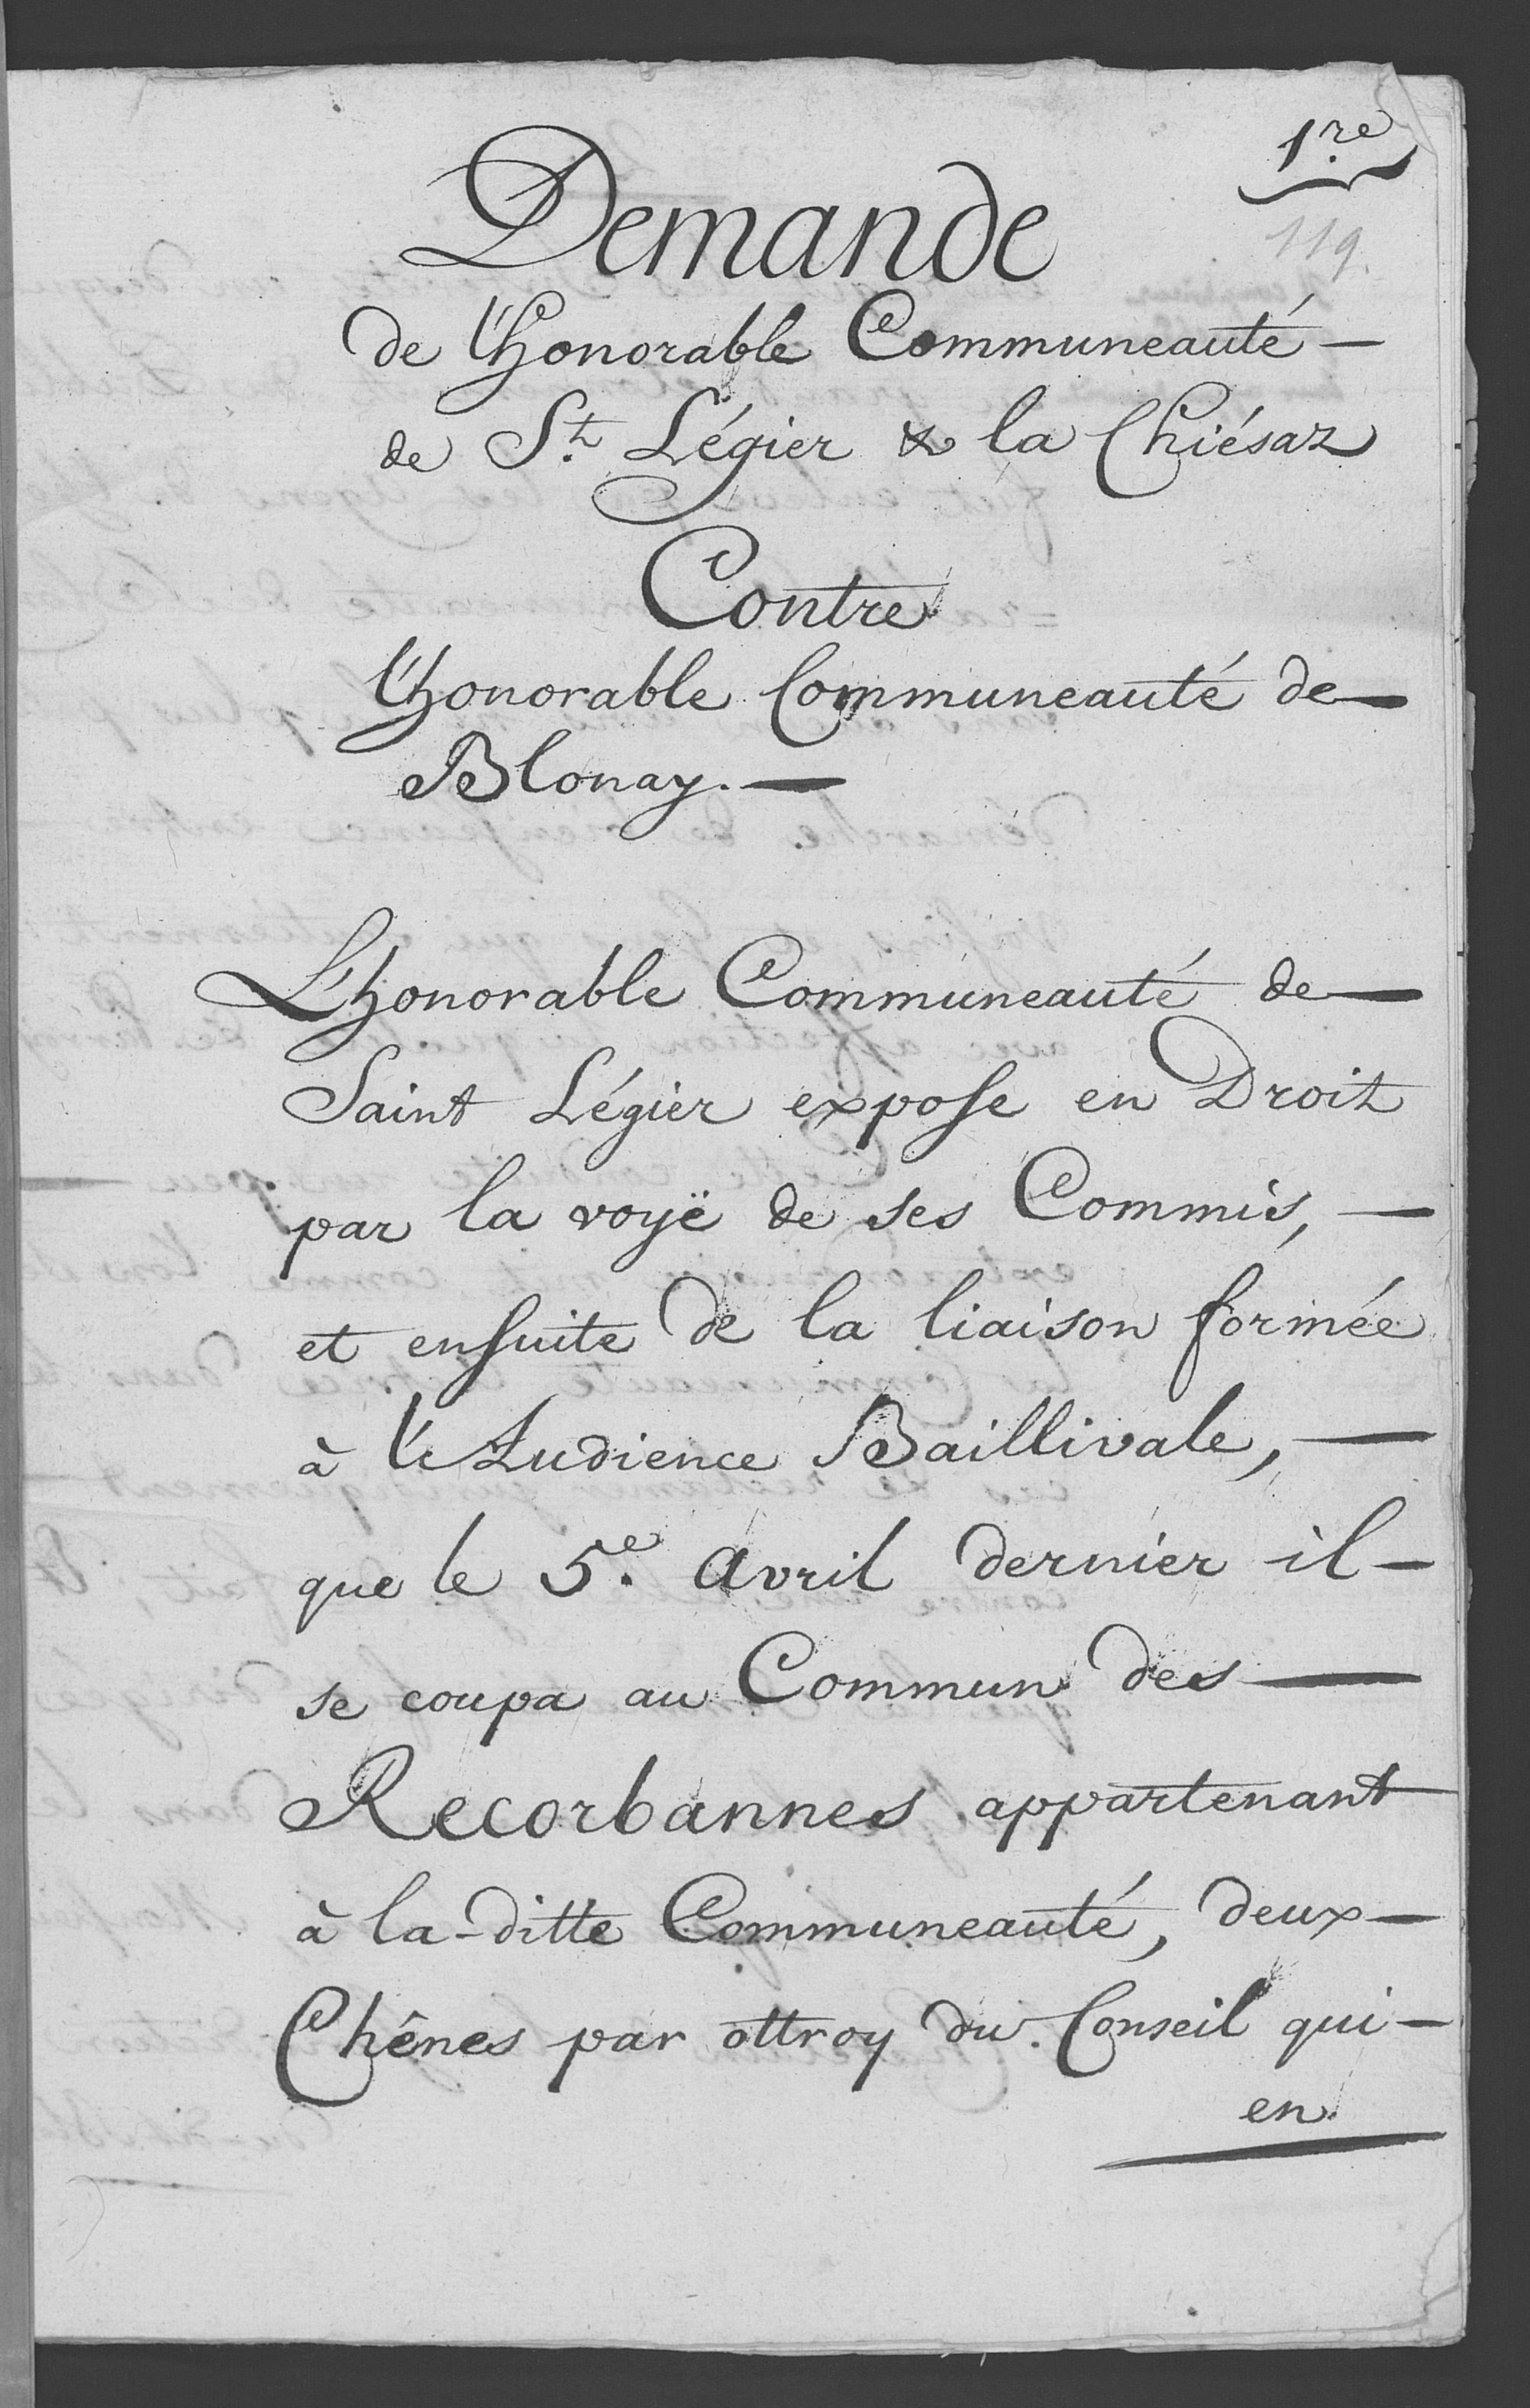 1.re
119.
Demande
de l'honorable Communeauté —
de St. Légier & la Chiésaz
Contre
l'honorable Communeauté de —
Blonay. —
L'honorable Communeauté de —
Saint Légier expose en Droit
par la voyë de ses Commis, —
et ensuite de la liaison formée
à l'Audience Baillivale, —
que le 5.e avril dernier il —
se coupa au Commun des —
Recorbannes appartenant
à la-ditte Communeauté, deux —
Chênes par ottroy du Conseil qui —
en